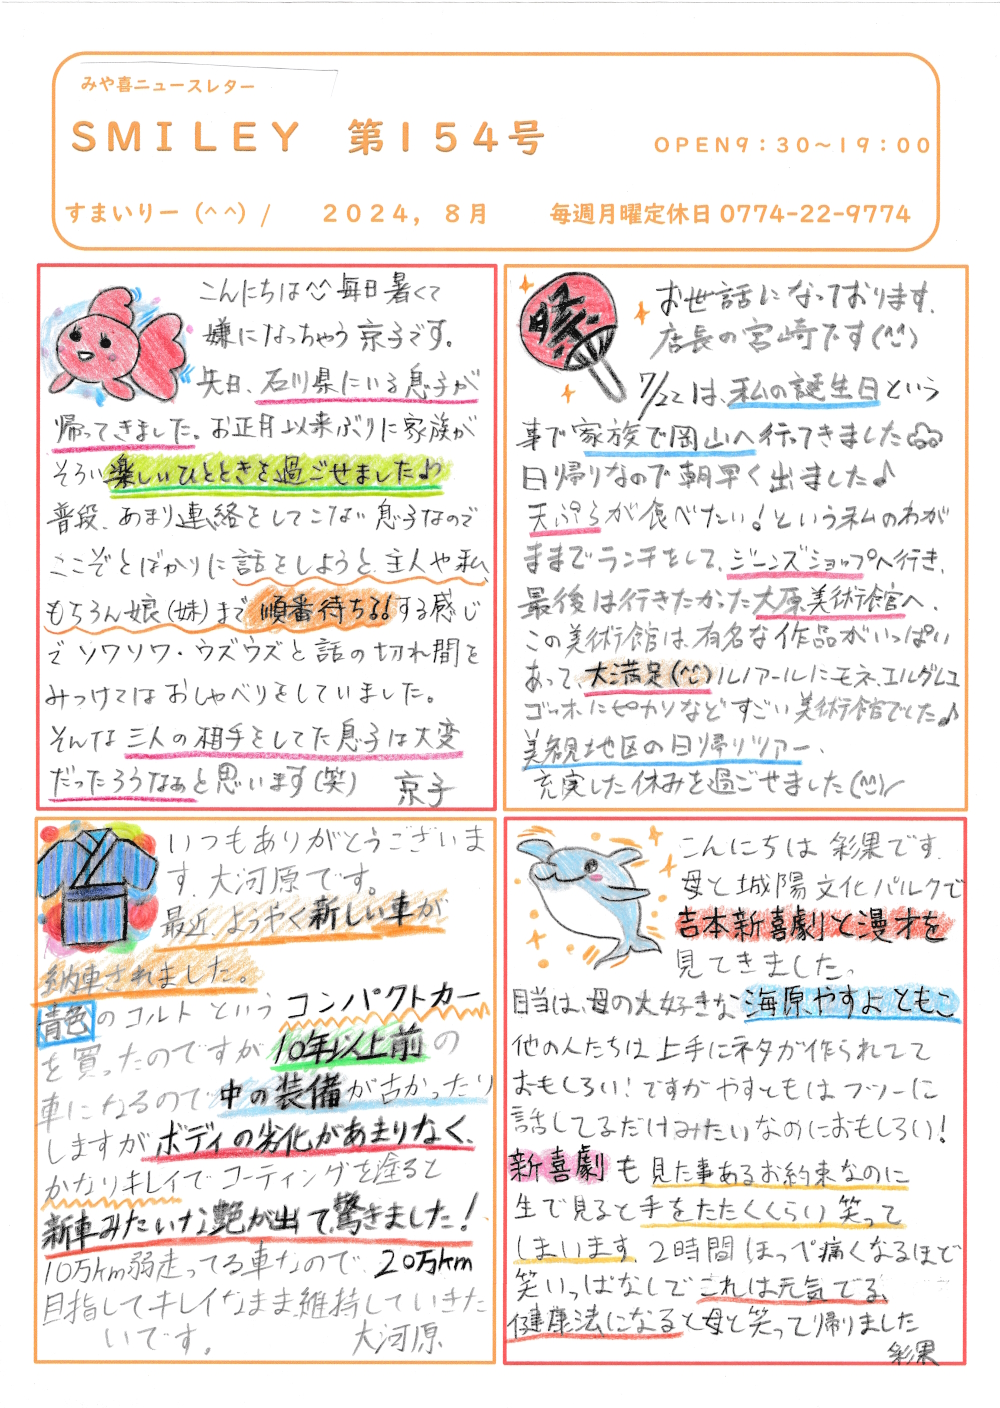 みや喜ニュースレター
SMILEY 第154号
OPEN9:30～19:00
すまいりー (^^) /
2024, 8月
毎週月曜定休日 0774-22-9774
こんにちは 毎日暑くて
嫌になっちゃう京子です。
先日、石川県にいる息子が
帰ってきました。お正月以来ぶりに家族が
そろい楽しいひとときを過ごせました♪
普段、あまり連絡をしてこない息子なので
ここぞとばかりに話をしようと、主人や私、
もちろん娘(妹)まで順番待ちる!!する感じ
でソワソワ・ウズウズと話の切れ間を
みつけてはおしゃべりをしていました。
そんな三人の相手をしてた息子は大変
だったろうなぁと思います(笑) 京子
勝
お世話になっております。
店長の宮崎です(^^)
7/22は、私の誕生日という
事で家族で岡山へ行ってきました
日帰りなので朝早く出ました♪
天ぷらが食べたい!という私のわが
ままでランチをして、ジーンズショップへ行き、
最後は行きたかった大原美術館へ、
この美術館は、有名な作品がいっぱい
あって、大満足(^^)ルノアールにモネ、エルグレコ
ゴッホにピカソなどすごい美術館でした♪
美観地区の日帰りツアー、
充実した休みを過ごせました(^^)/
いつもありがとうございま
す。大河原です。
最近、ようやく新しい車が
納車されました。
青色のコルトというコンパクトカー
を買ったのですが10年以上前の
車になるので中の装備が古かったり
しますがボディの劣化があまりなく、
かなりキレイでコーティングを塗ると
新車みたいな艶が出て驚きました!
10万km弱走ってる車なので、20万km
目指してキレイなまま維持していきた
いです。 大河原
こんにちは 彩果です。
母と城陽文化パルクで
吉本新喜劇と漫才を
見てきました。
目当は、母の大好きな海原やすよともこ
他の人たちは上手にネタが作られてて
おもしろい!ですがやすともはフツーに
話してるだけみたいなのにおもしろい!
新喜劇も見た事あるお約束なのに
生で見ると手をたたくくらい笑って
しまいます。2時間ほっぺ痛くなるほど
笑いっぱなしでこれは元気でる、
健康法になると母と笑って帰りました
彩果